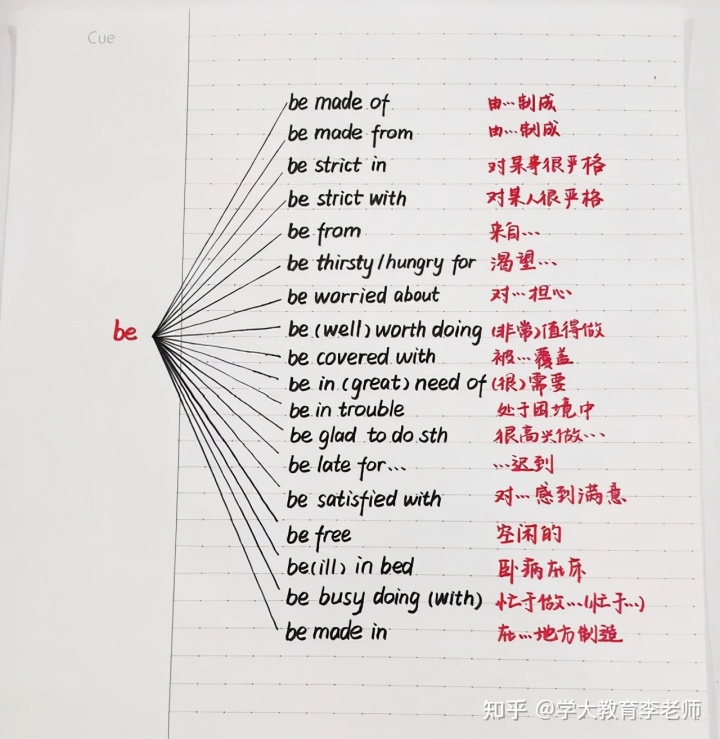 Cue
be
be made of 由…制成
be made from 由…制成
be strict in 对某事很严格
be strict with 对某人很严格
be from 来自…
be thirsty/hungry for 渴望…
be worried about 对…担心
be (well) worth doing (非常)值得做
be covered with 被…覆盖
be in (great) need of (很)需要
be in trouble 处于困境中
be glad to do sth 很高兴做…
be late for… …迟到
be satisfied with 对…感到满意
be free 空闲的
be (ill) in bed 卧病在床
be busy doing (with) 忙于做…(忙于…)
be made in 在…地方制造
知乎 @学大教育李老师